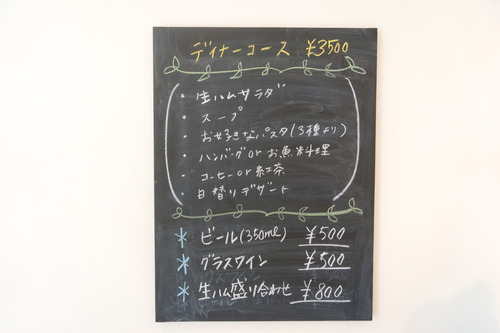 ディナーコース ¥3500
・ 生ハムサラダ
・ スープ
・ お好きなパスタ(3種より)
・ ハンバーグ or お魚料理
・ コーヒー or 紅茶
・ 日替りデザート
* ビール(350ml) ¥500
* グラスワイン ¥500
* 生ハム盛り合わせ ¥800